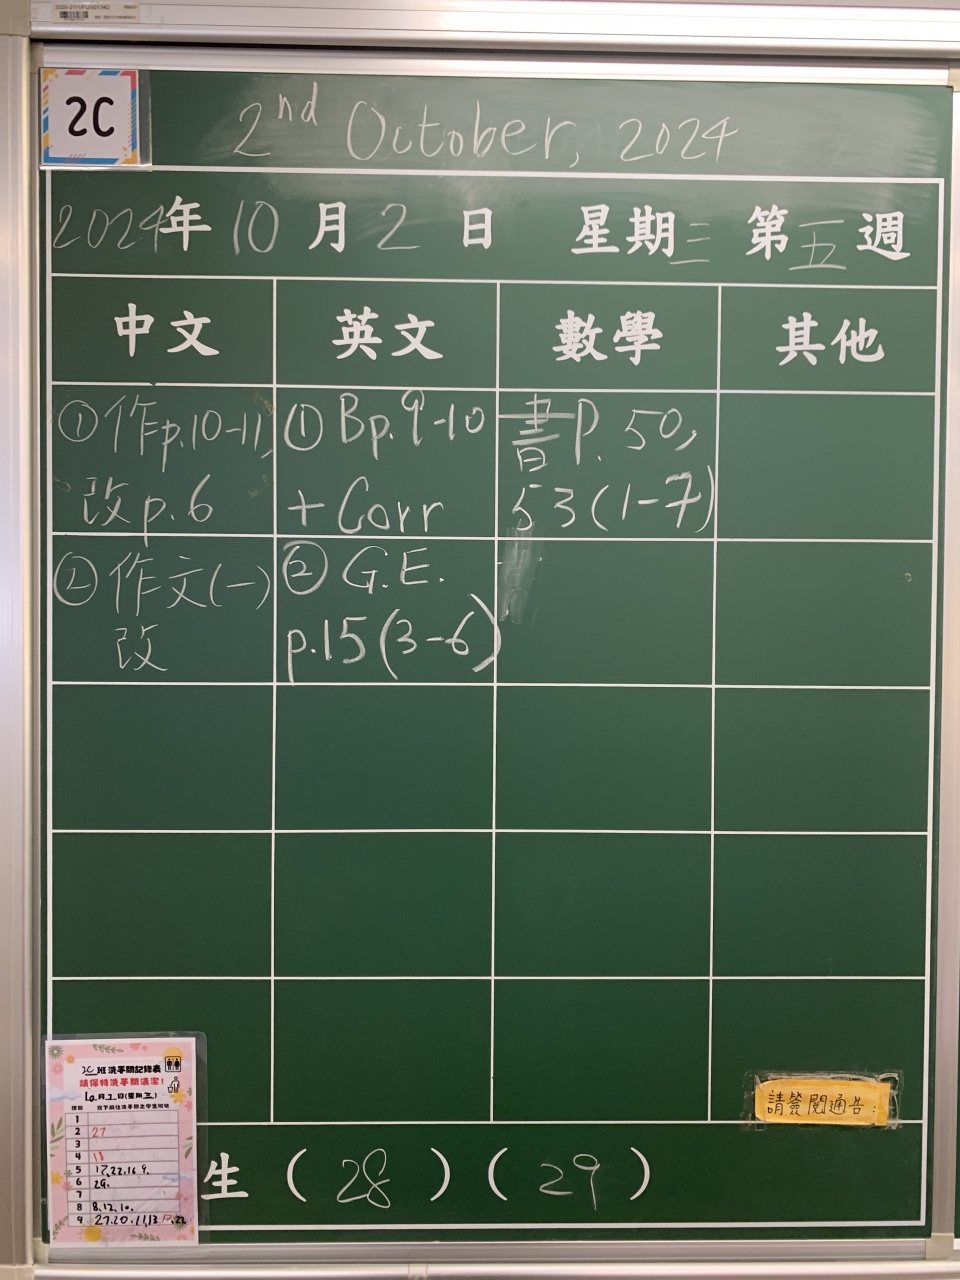 2C
2nd October, 2024
2024年10月2日 星期三 第五週
中文 英文 數學 其他
①作p.10-11,
改p.6
①Bp.9-10
+Corr
書P.50,
53(1-7)
②作文(一)
改
②G.E.
p.15(3-6)
請簽閱通告:
生(28)(29)
2C班洗手間記錄表
請保持洗手間清潔!
10月2日(星期三)
1
2 27
3
4 18
5 17.22.16.9.
6 29.
7
8 8.12.10.
9 27.20.11.13